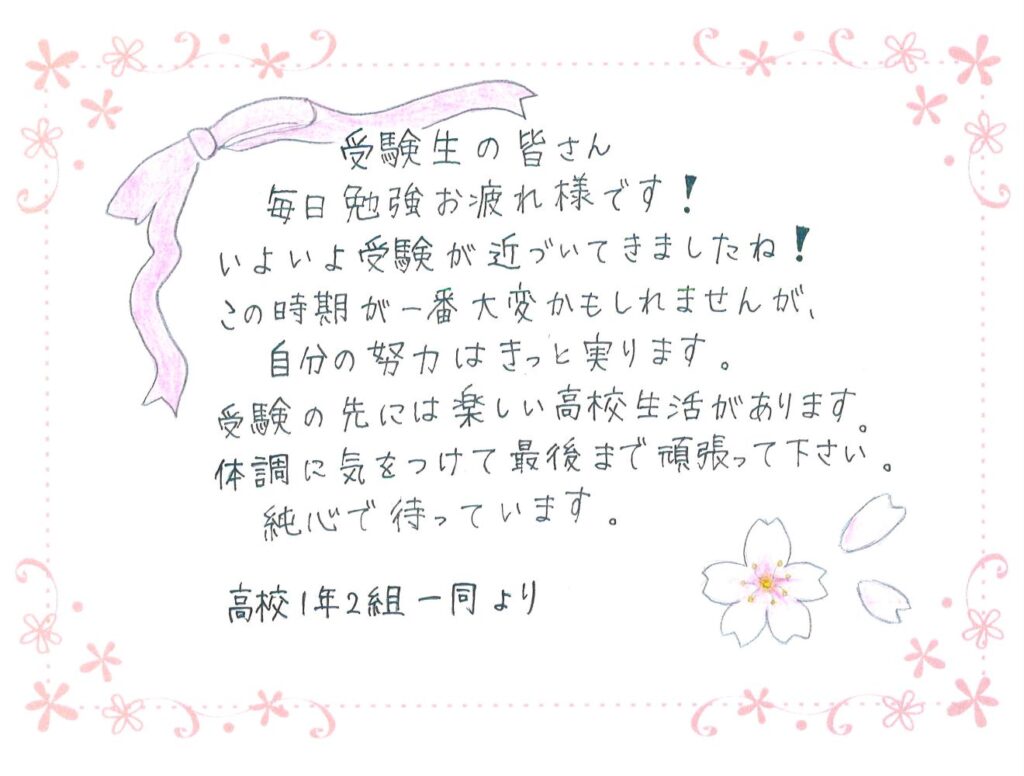 受験生の皆さん
毎日勉強お疲れ様です！
いよいよ受験が近づいてきましたね！
この時期が一番大変かもしれませんが、
自分の努力はきっと実ります。
受験の先には楽しい高校生活があります。
体調に気をつけて最後まで頑張って下さい。
純心で待っています。
高校1年2組一同より